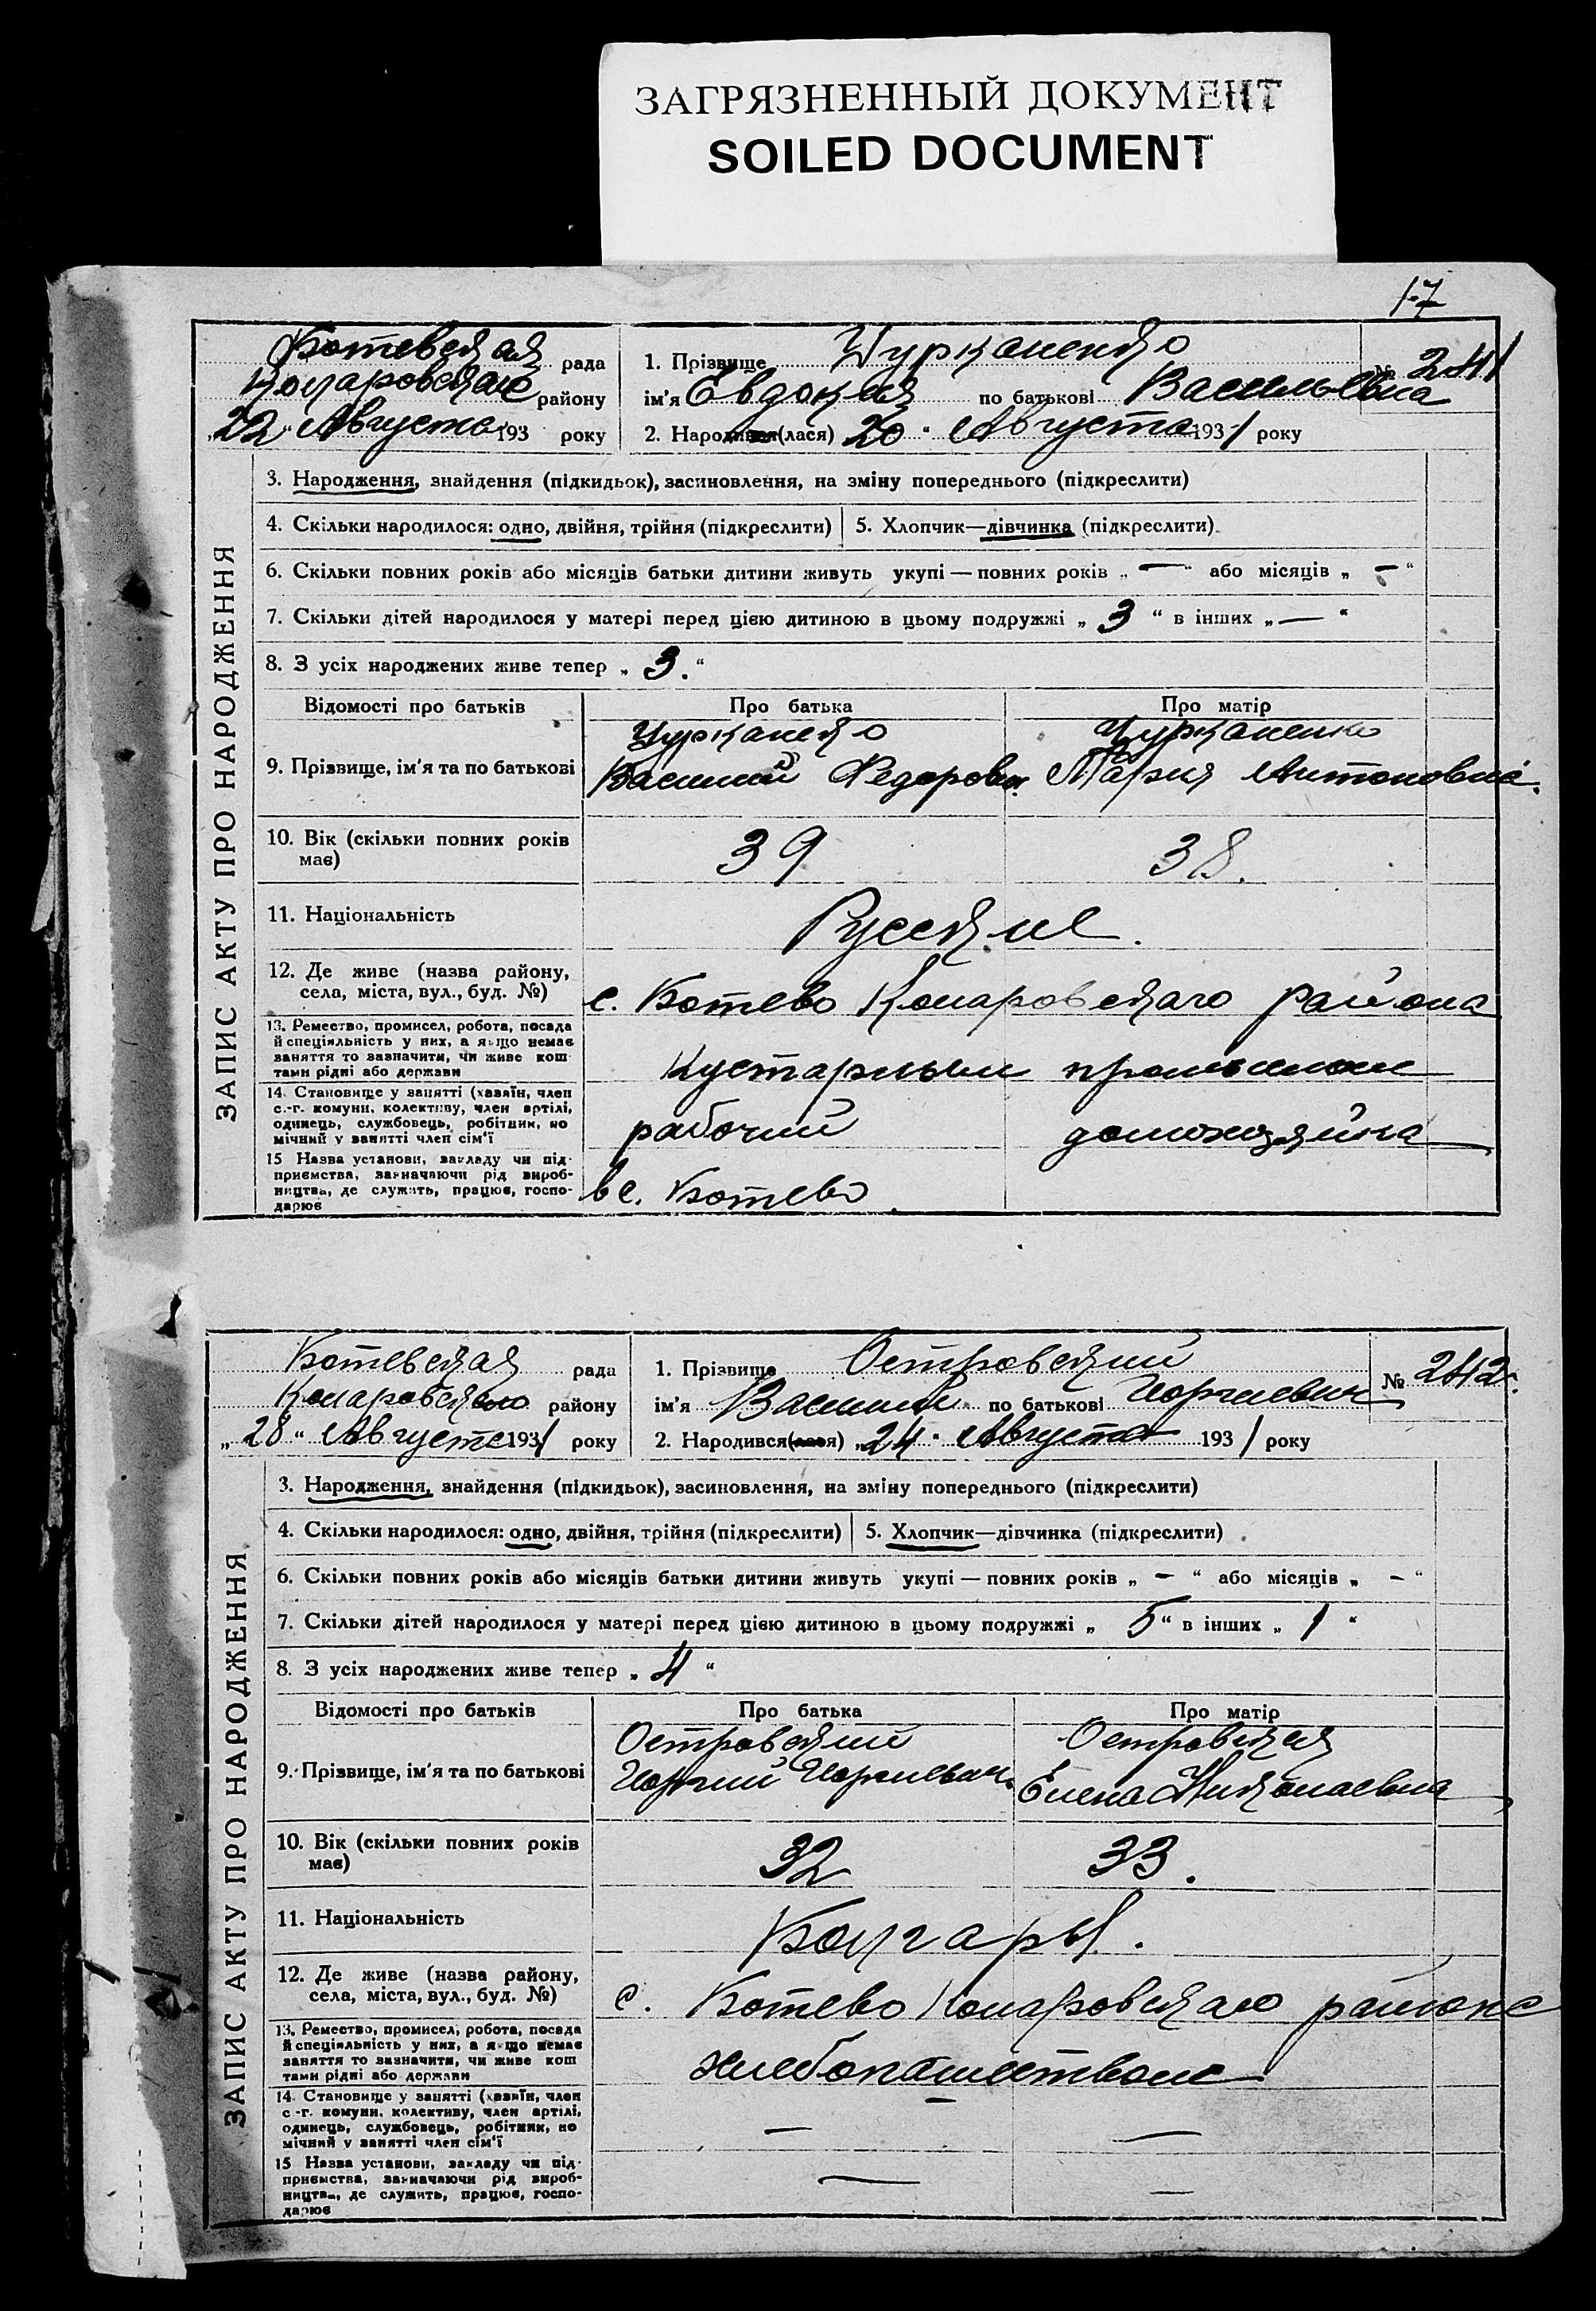 ЗАГРЯЗНЕННЫЙ ДОКУМЕНТ
SOILED DOCUMENT
17
ЗАПИС АКТУ ПРО НАРОДЖЕННЯ
Ботевская рада
Коларовского району
„22“ Августа 193 року
1. Прізвище Цурканенко
№ 241
ім'я Евдокия по батькові Васильевна
2. Народився(лася) 20 " Августа 1931 року
3. Народження, знайдення (підкидьок), засиновлення, на зміну попереднього (підкреслити)
4. Скільки народилося: одно, двійня, трійня (підкреслити) 5. Хлопчик—дівчинка (підкреслити)
6. Скільки повних років або місяців батьки дитини живуть укупі — повних років „ — “ або місяців „ — “
7. Скільки дітей народилося у матері перед цією дитиною в цьому подружжі „ 3 “ в інших „ — “
8. З усіх народжених живе тепер „ 3. “
Відомості про батьків Про батька Про матір
9. Прізвище, ім'я та по батькові
Цурканенко
Василий Федоров.
Цурканенко
Мария Антоновна.
10. Вік (скільки повних років має)
39 38.
11. Національність
Русские.
12. Де живе (назва району, села, міста, вул., буд. №)
с. Ботево Коларовскаго района
13. Ремество, промисел, робота, посада
й спеціяльність у них, а якщо немає
заняття то зазначити, чи живе кош-
тами рідні або держави
Кустарным промыслом
14. Становище у занятті (хазяїн, член
с.-г. комуни, колективу, член артілі,
одинець, службовець, робітник, по
мічний у занятті член сім'ї
рабочий домохозяйка
15 Назва установи, закладу чи під-
приємства, зазначаючи рід вироб-
ництва, де служить, працює, госпо-
дарює
в с. Ботево
ЗАПИС АКТУ ПРО НАРОДЖЕННЯ
Ботевская рада
Коларовского району
„28“ Августа 1931 року
1. Прізвище Островский
№ 242.
ім'я Василий по батькові Георгиевич
2. Народився(лася) „24 " Августа 1931 року
3. Народження, знайдення (підкидьок), засиновлення, на зміну попереднього (підкреслити)
4. Скільки народилося: одно, двійня, трійня (підкреслити) 5. Хлопчик—дівчинка (підкреслити)
6. Скільки повних років або місяців батьки дитини живуть укупі — повних років „ — “ або місяців „ — “
7. Скільки дітей народилося у матері перед цією дитиною в цьому подружжі „ 5 “ в інших „ 1 “
8. З усіх народжених живе тепер „ 4 “
Відомості про батьків Про батька Про матір
9. Прізвище, ім'я та по батькові
Островский
Островская
Елена Николаевна
10. Вік (скільки повних років має)
32 33.
11. Національність
Болгары.
12. Де живе (назва району, села, міста, вул., буд. №)
с. Ботево Коларовскаго района
13. Ремество, промисел, робота, посада
й спеціяльність у них, а якщо немає
заняття то зазначити, чи живе кош
тами рідні або держави
хлебопашеством
14. Становище у занятті (хазяїн, член
с.-г. комуни, колективу, член артілі,
одинець, службовець, робітник, по
мічний у занятті член сім'ї
— —
15 Назва установи, закладу чи під-
приємства, зазначаючи рід вироб-
ництва, де служить, працює, госпо-
дарює
— —